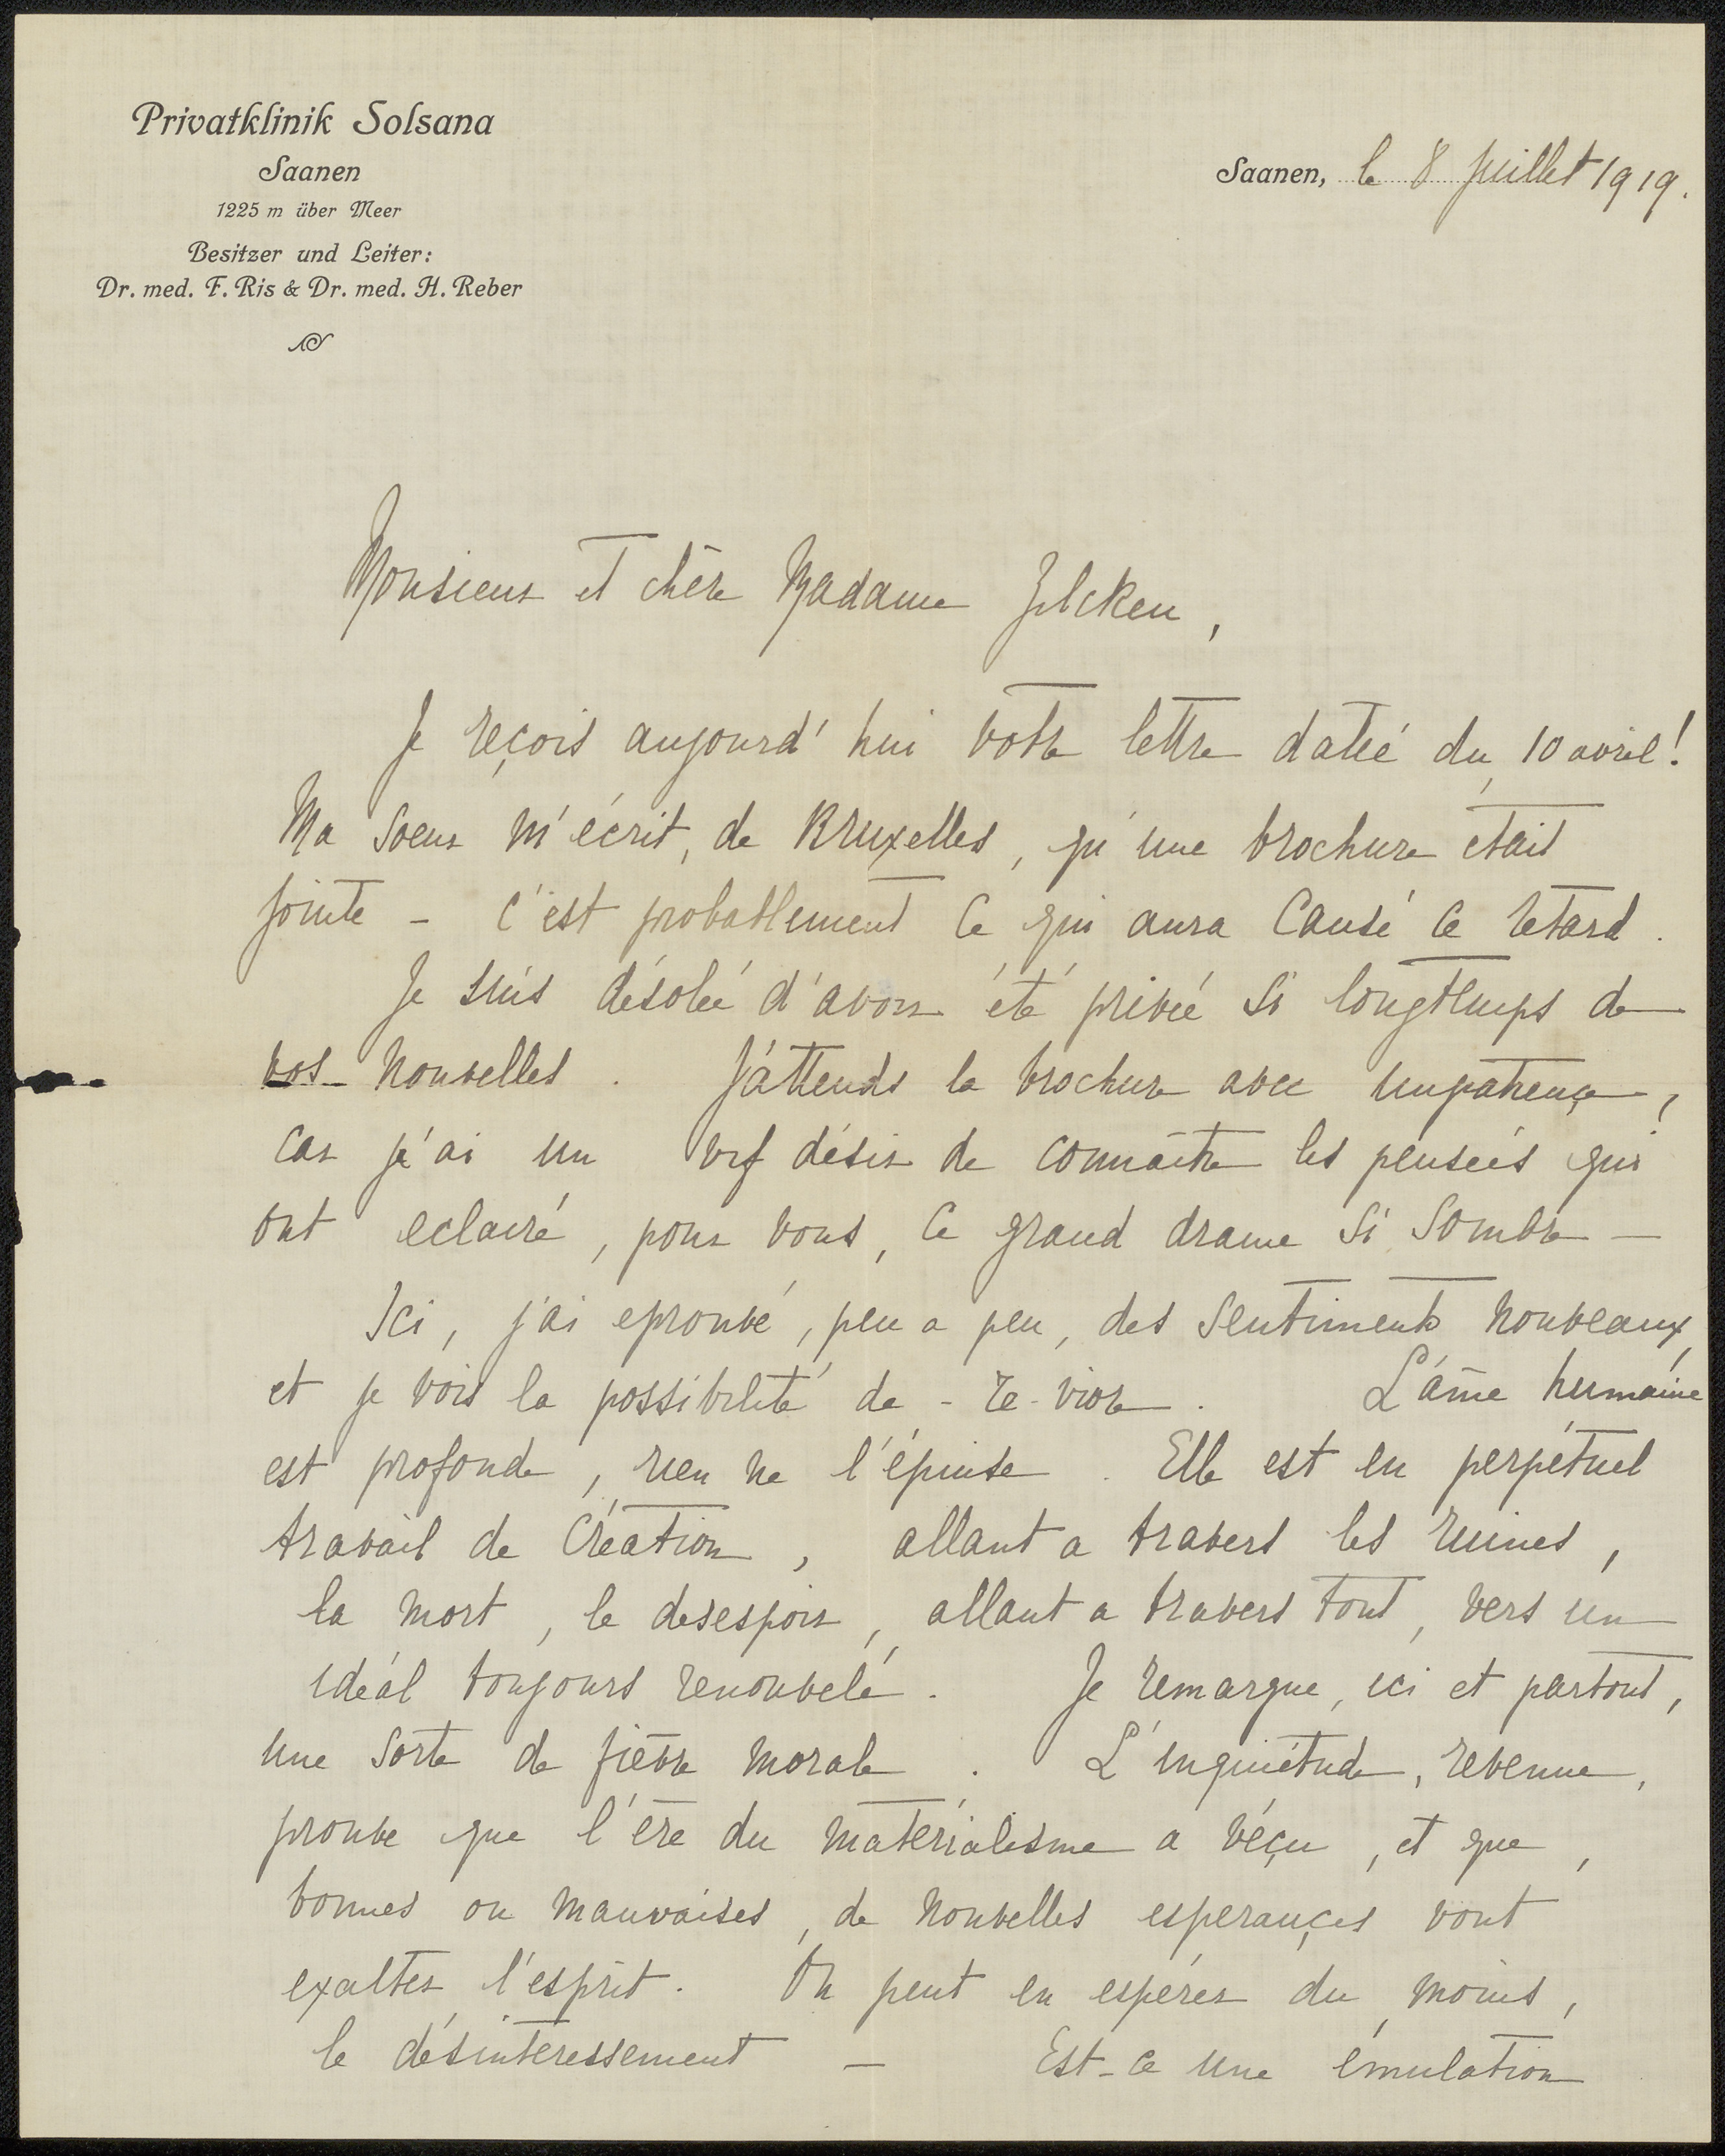 Privatklinik Solsana
Saanen
1225 m über Meer
Besitzer und Leiter:
Dr. med. F. Ris & Dr. med. H. Reber
Saanen, le 8 juillet 1919.
Monsieur et chère Madame Zilcken,
Je reçois aujourd'hui votre lettre datée du 10 avril!
Ma soeur m'écrit, de Bruxelles, qu'une brochure était
jointe - c'est probablement ce qui aura causé ce retard.
Je suis désolée d'avoir été privée si longtemps de
vos nouvelles. J'attends la brochure avec impatiençe,
car j'ai un vif désir de connaître les pensées qui
ont eclairé, pour vous, ce grand drame si sombre —
Ici, j'ai eprouvé, peu a peu, des sentiments nouveaux,
et je vois la possibilité de - re-vivre. L'âme humaine
est profonde, rien ne l'épuise. Elle est en perpétuel
travail de création, allant a travers les ruines,
la mort, le desespoir, allant a travers tout, vers un
idéal toujours renouvelé. Je remarque, ici et partout,
une sorte de fièvre morale. L'inquiétude, revenue,
prouve que l'ère du matérialisme a véçu, et que,
bonnes ou mauvaises, de nouvelles esperançes vont
exalter l'esprit. On peut en espérer du moins,
le désinteressement — Est-ce une émulation